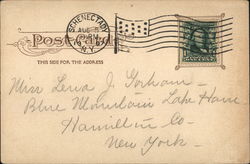 SCHENECTADY
AUG
N.Y.
Post Card
THIS SIDE FOR THE ADDRESS
Miss Lena J. Gorham
Blue Mountain Lake House
Hamilton Co
New York